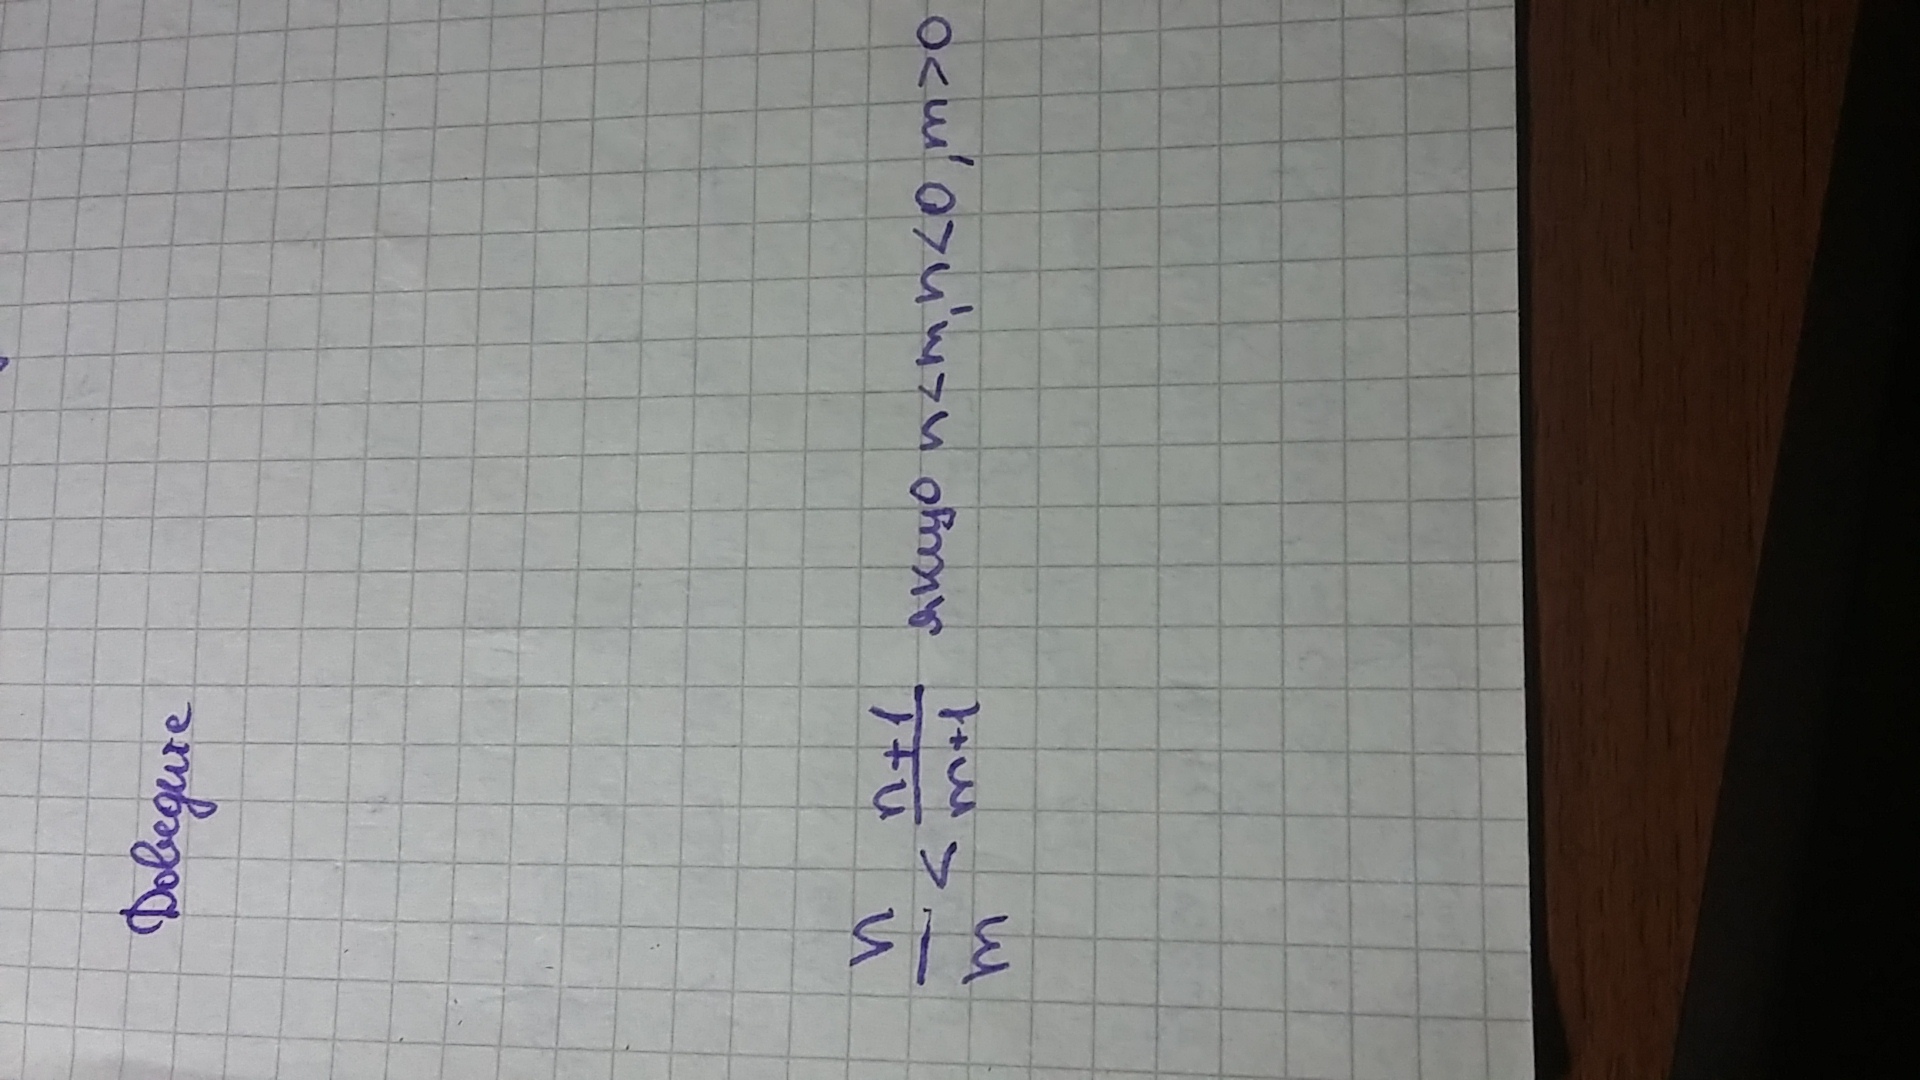 Доведите
n/m < n+1/m+1 якщо n<m, n>0, m>0